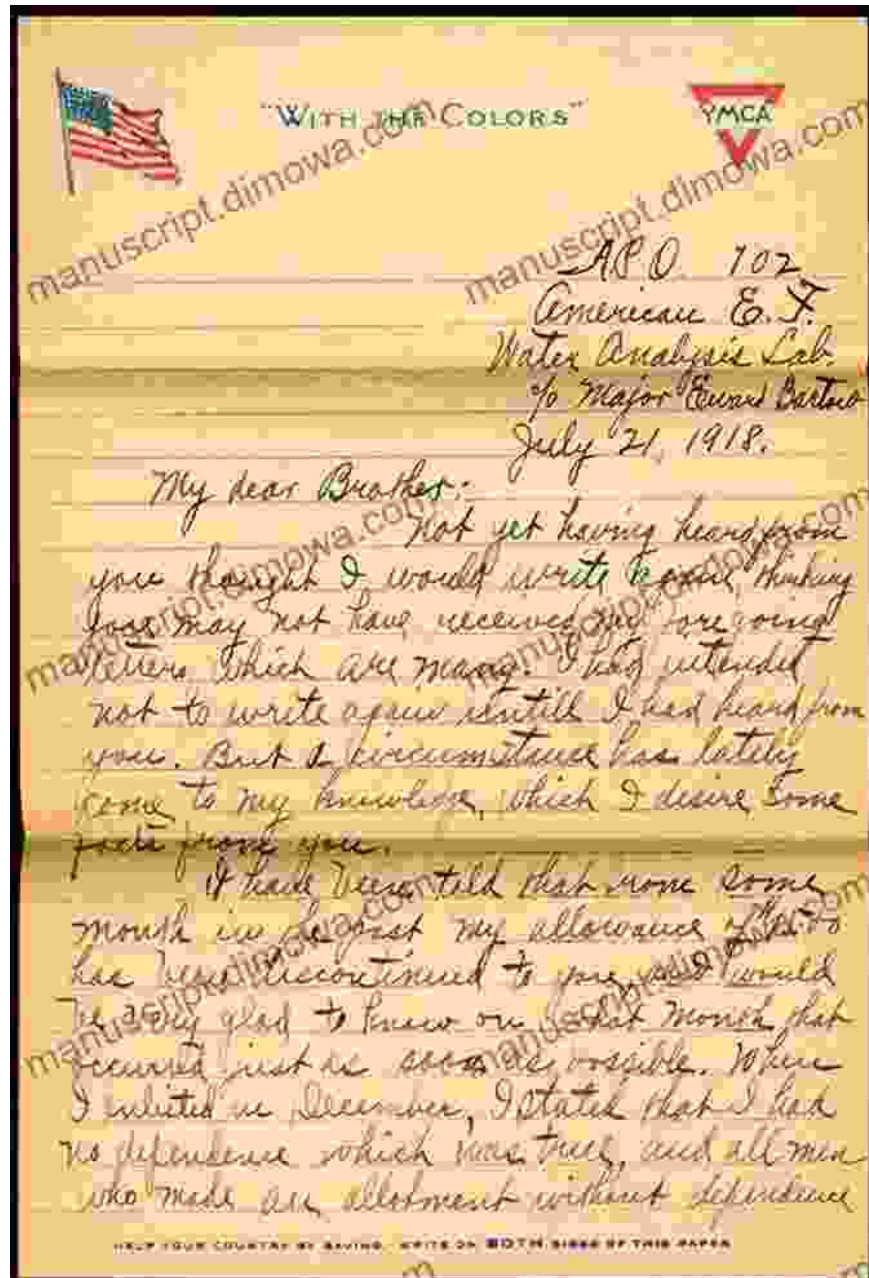 "WITH THE COLORS"
YMCA
manuscript.dimowa.com
manuscript.dimowa.com
A.P.O. 702
American E. F.
Water Analysis Lab.
c/o Major Edward
July 21, 1918.
My dear Brother:
Not yet having heard from
you thought I would write again, thinking
you may not have received my foregoing
letters which are many. I had intended
not to write again untill I had heard from
you. But a circumstance has lately
come to my knowledge, which I desire some
facts from you.
I have been told that from some
month in the past my allowance of
has been discontinued to you, and would
be very glad to know on what month that
occurred just as soon as possible. When
I enlisted in December, I stated that I had
no dependence which was true, and all men
who made an allotment without dependence
manuscript.dimowa.com
manuscript.dimowa.com
manuscript.dimowa.com
manuscript.dimowa.com
HELP YOUR COUNTRY BY SAVING. WRITE ON BOTH SIDES OF THIS PAPER